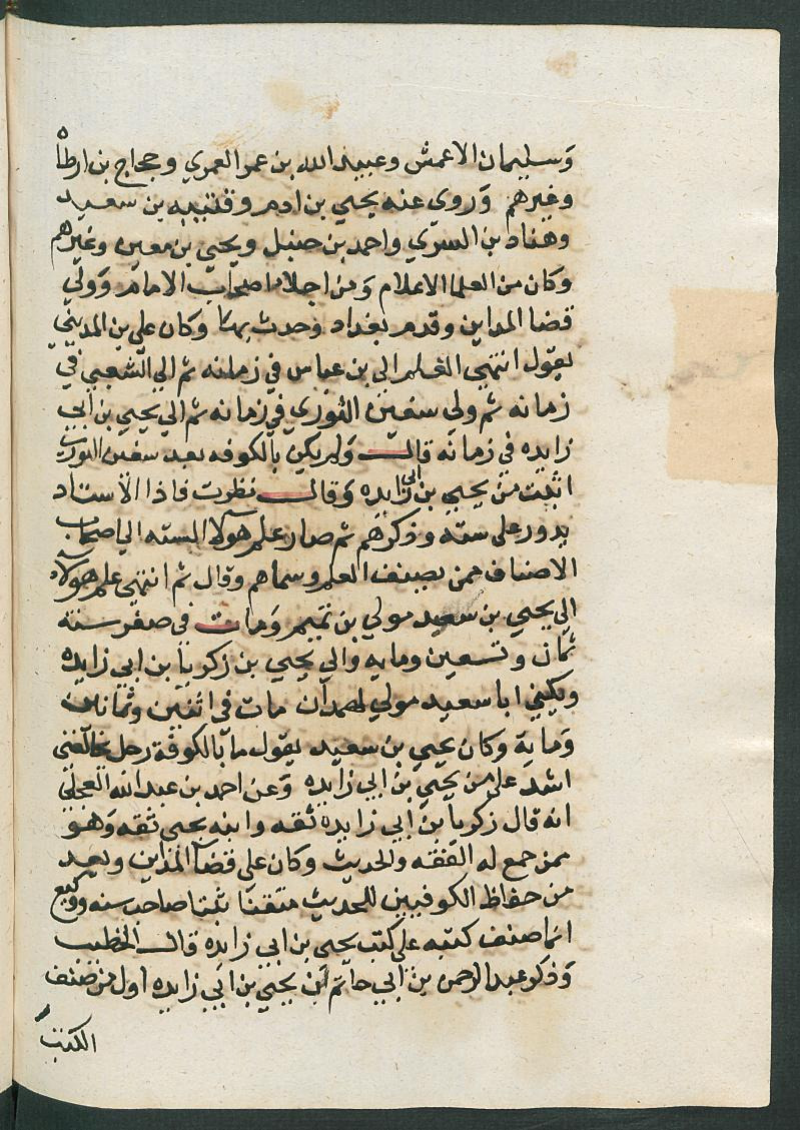 وسليمان الاعمش وعبيد الله بن عمر العمري وحجاج بن ارطاه
وغيرهم وروي عنه يحيي بن ادم وقتيبه بن سعيد
وهناد بن السري واحمد بن حنبل ويحيي بن معين وغيرهم
وكان من العلما الاعلام ومن اجلا اصحاب الامام وولي
قضا المداين وقدم بغداد وحدث بها وكان علي بن المديني
يقول انتهي العلم الي بن عباس في زمانه ثم الي الشعبي في
زمانه ثم ولي سفين الثوري في زمانه ثم الي يحيي بن ابي
زايده في زمانه قال ولم يكن بالكوفه بعد سفين الثوري
اثبت من يحيي بن ابي زايده وقال نظرت فاذا الاستاد
يدور علي سته وذكرهم ثم صار علم هولا السته الي اصحاب
الاصناف ممن يصنف العلم وسماهم وقال ثم انتهي علم هولاء
الي يحيي بن سعيد مولي بن تميم ومات في صفر سنه
ثمان وتسعين ومايه والي يحيي بن زكريا بن ابي زايده
ويكني ابا سعيد مولي لهمدان مات في اثنين وثمانين
وماية وكان يحيي بن سعيد يقول ما بالكوفة رجل يخالفني
اشد علي من يحيي بن ابي زايده وعن احمد بن عبد الله العجلي
انه قال زكريا بن ابي زايده ثقه وابنه يحيي ثقه وهو
ممن جمع له الفقه والحديث وكان علي قضا المداين ويعد
من حفاظ الكوفيين للحديث متقنا ثبتا صاحب سنه ووكيع
انما صنف كتبه علي كتب يحيي بن ابي زايده قال الخطيب
وذكر عبد الرحمن بن ابي حاتم ان يحيي بن ابي زايده اول من صنف
الكتب